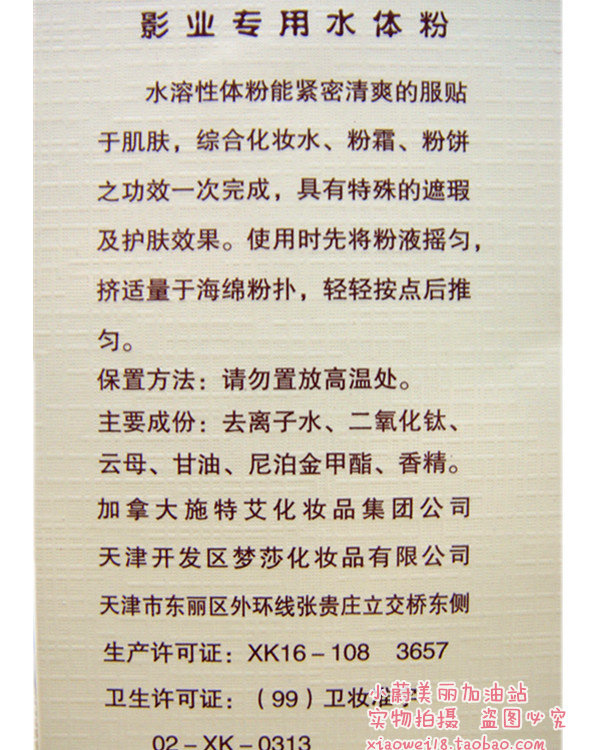 影业专用水体粉
水溶性体粉能紧密清爽的服贴
于肌肤，综合化妆水、粉霜、粉饼
之功效一次完成，具有特殊的遮瑕
及护肤效果。使用时先将粉液摇匀，
挤适量于海绵粉扑，轻轻按点后推
匀。
保置方法：请勿置放高温处。
主要成份：去离子水、二氧化钛、
云母、甘油、尼泊金甲酯、香精。
加拿大施特艾化妆品集团公司
天津开发区梦莎化妆品有限公司
天津市东丽区外环线张贵庄立交桥东侧
生产许可证：XK16－108 3657
卫生许可证：（99）卫妆准字
02－XK－0313
小蔚美丽加油站
实物拍摄 盗图必究
xiaowei18.taobao.com